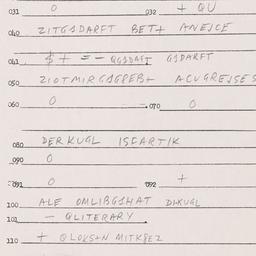 031 0 032 + QU
040 ZITGSDARFT BET+ ANEJCE
041 $ + = - QGSDAFT GSDARFT
050 ZIOTMIRGSGPEB+ ACUGREJSES
060 0 070 0
080 DERKUGL ISFARTIK
090 0
091 0 092 +
100 ALE OMLIBGSHAT DIKUGL
101 - QLITERARY
110 + QLOKSON MITKPEZ